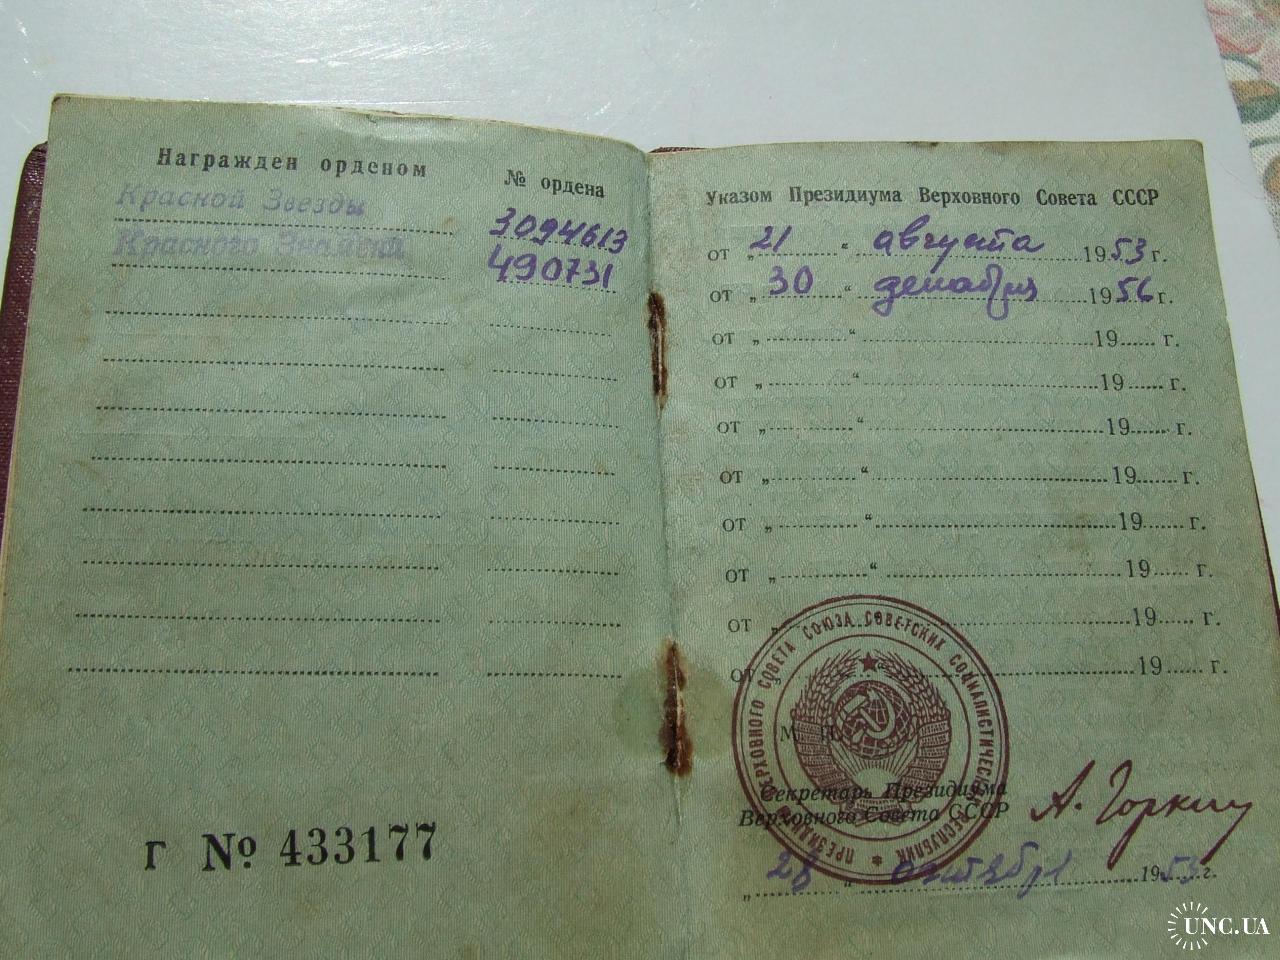 Награжден орденом
№ ордена
Красной Звезды
3094613
Красного Знамени
490731
Г № 433177
Указом Президиума Верховного Совета СССР
от „ 21 “ августа 1953 г.
от „ 30 “ декабря 1956 г.
от „ “ 19 г.
от „ “ 19 г.
от „ “ 19 г.
от „ “ 19 г.
от „ “ 19 г.
от „ “ 19 г.
от „ “ 19 г.
от „ “ 19 г.
ПРЕЗИДИУМ ВЕРХОВНОГО СОВЕТА СОЮЗА СОВЕТСКИХ СОЦИАЛИСТИЧЕСКИХ РЕСПУБЛИК
М. П.
Секретарь Президиума
Верховного Совета СССР
А. Горкин
„ 28 “ 1953 г.
UNC.UA